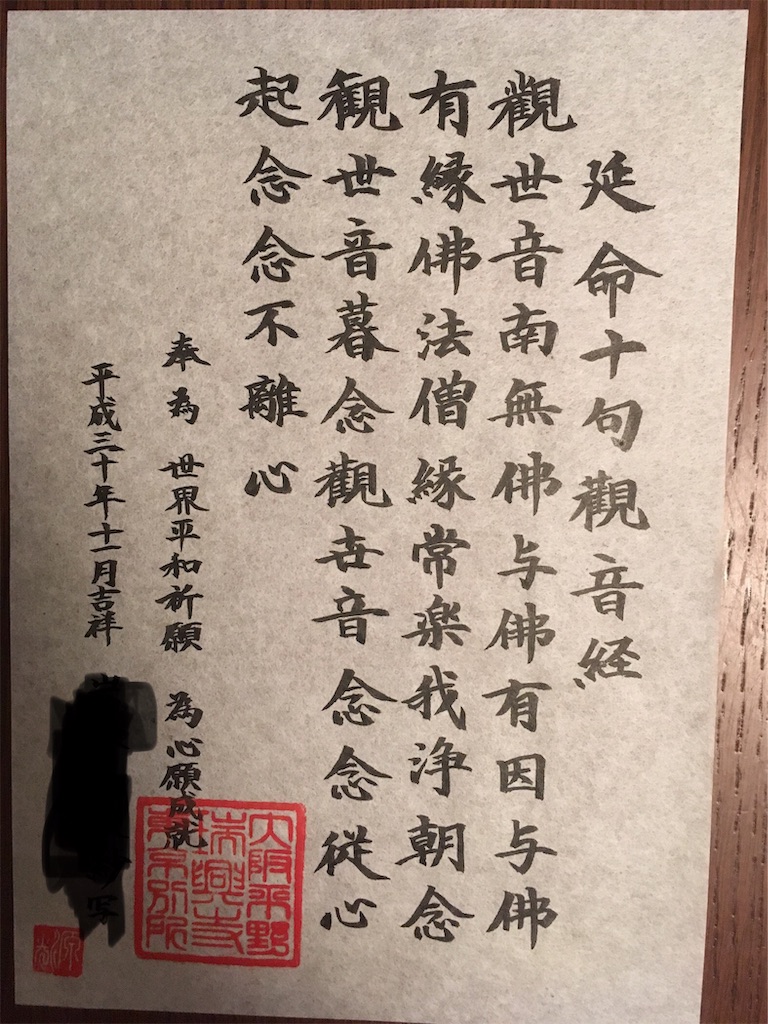 延命十句觀音経
觀世音南無佛与佛有因与佛
有縁佛法僧縁常楽我浄朝念
観世音暮念觀世音念念從心
起念念不離心
奉為 世界平和祈願 為心願成就
平成三十年十一月吉祥 写
大阪平野
瑞興寺
東京別所